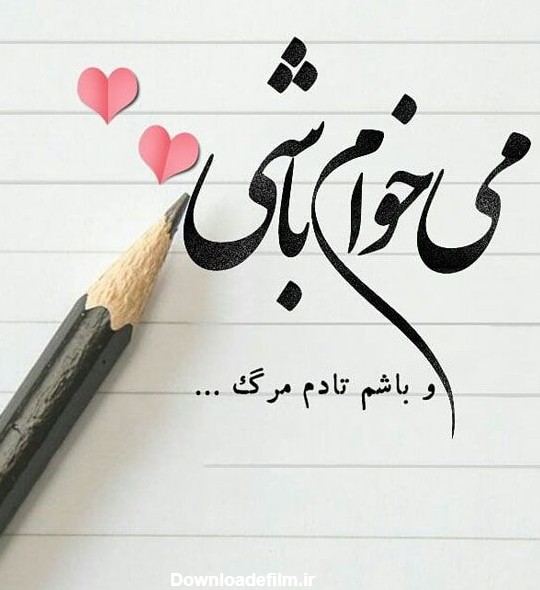 می خوام باشی
و باشم تادم مرگ ...
Downloadefilm.ir